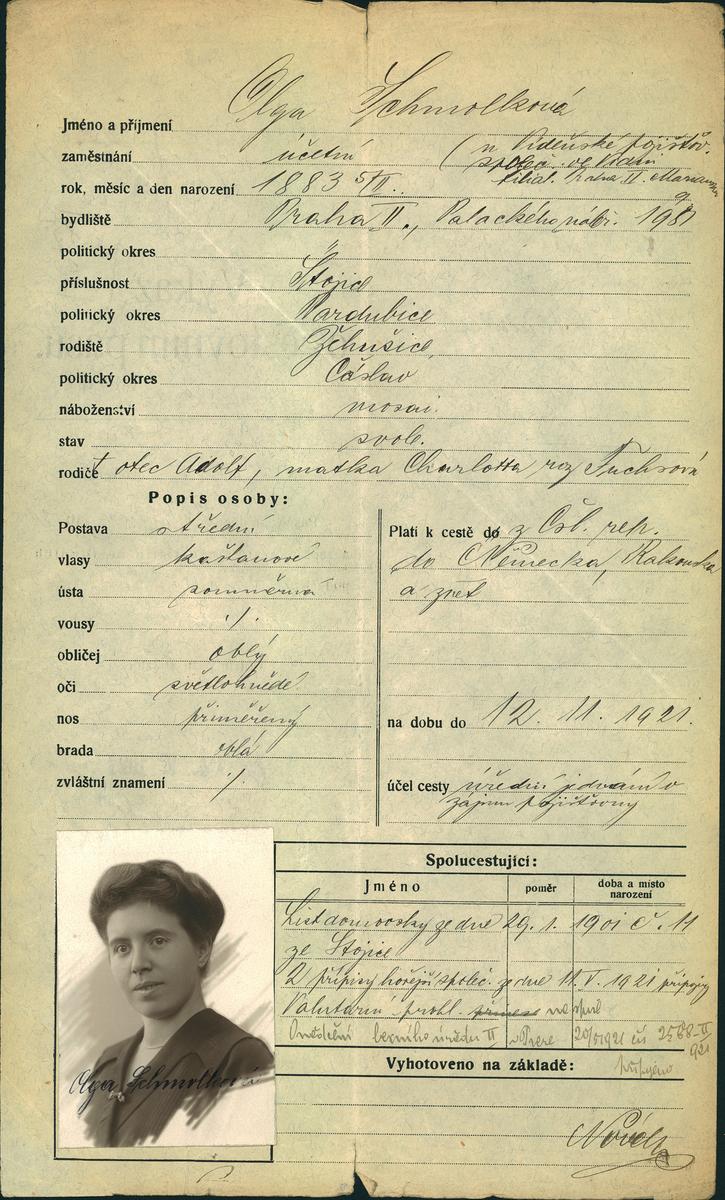 Jméno a příjmení Olga Schmolková
zaměstnání účetní (u Vídeňské pojišťov.
společ. ve Vídni
filial. Praha II.
rok, měsíc a den narození 1883 5/II.
bydliště Praha II., Palackého nábř. 1981
politický okres "
příslušnost Stojic
politický okres Pardubice
rodiště Žehušice,
politický okres Čáslav
náboženství mosai.
stav svob.
rodiče † otec Adolf, matka Charlotta roz. Fuchsová
Popis osoby:
Postava střední
vlasy kaštanové
ústa souměrná
vousy ./.
obličej oblý
oči světlohnědé
nos přiměřený
brada oblá
zvláštní znamení ./.
Platí k cestě do z Čsl. rep.
do Německa, Rakouska
a zpět
na dobu do 12. 11. 1921.
účel cesty úřední jednání v
zájmu pojišťovny
Olga Schmolková
Spolucestující:
Jméno poměr doba a místo narození
List domovský ze dne 29. 1. 1901 č. 11
ze Stojic
2 přípisy hořejší společ. ze dne 11. V. 1921 připojeny
Valutární prohl.
berního úřadu II v Praze 20/5 1921 čís 2568-II
921
připojeno
Vyhotoveno na základě:
Novák